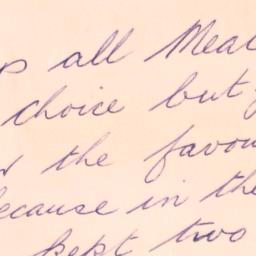 all Meat
choice but
the favou
because in the
kept two